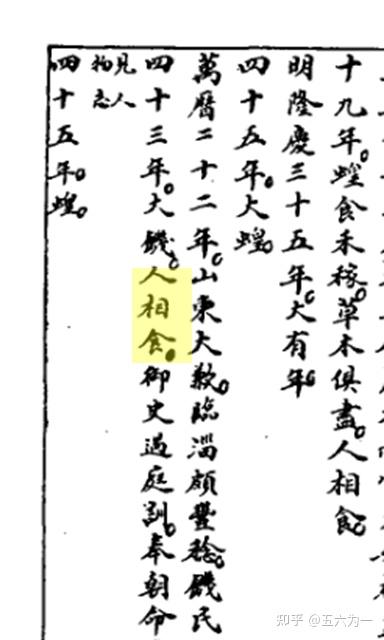 十九年。蝗食禾稼。草木俱盡。人相食。
明隆慶三十五年。大有年。
四十五年。大蝗。
萬曆二十二年。山東大歉。臨淄頗豐稔。饑民
四十三年。大饑。人相食。御史過庭訓。奉朝命
見人
物志
四十五年。蝗。
知乎 @五六为一